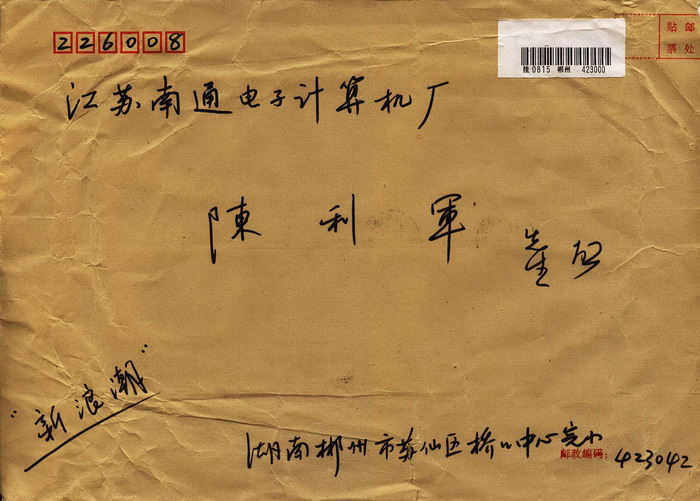 226008
贴邮
票处
挂 0815 郴州 423000
江苏南通电子计算机厂
陳利軍 先生 启
"新浪潮"
湖南郴州市苏仙区桥口中心完小
邮政编码: 423042